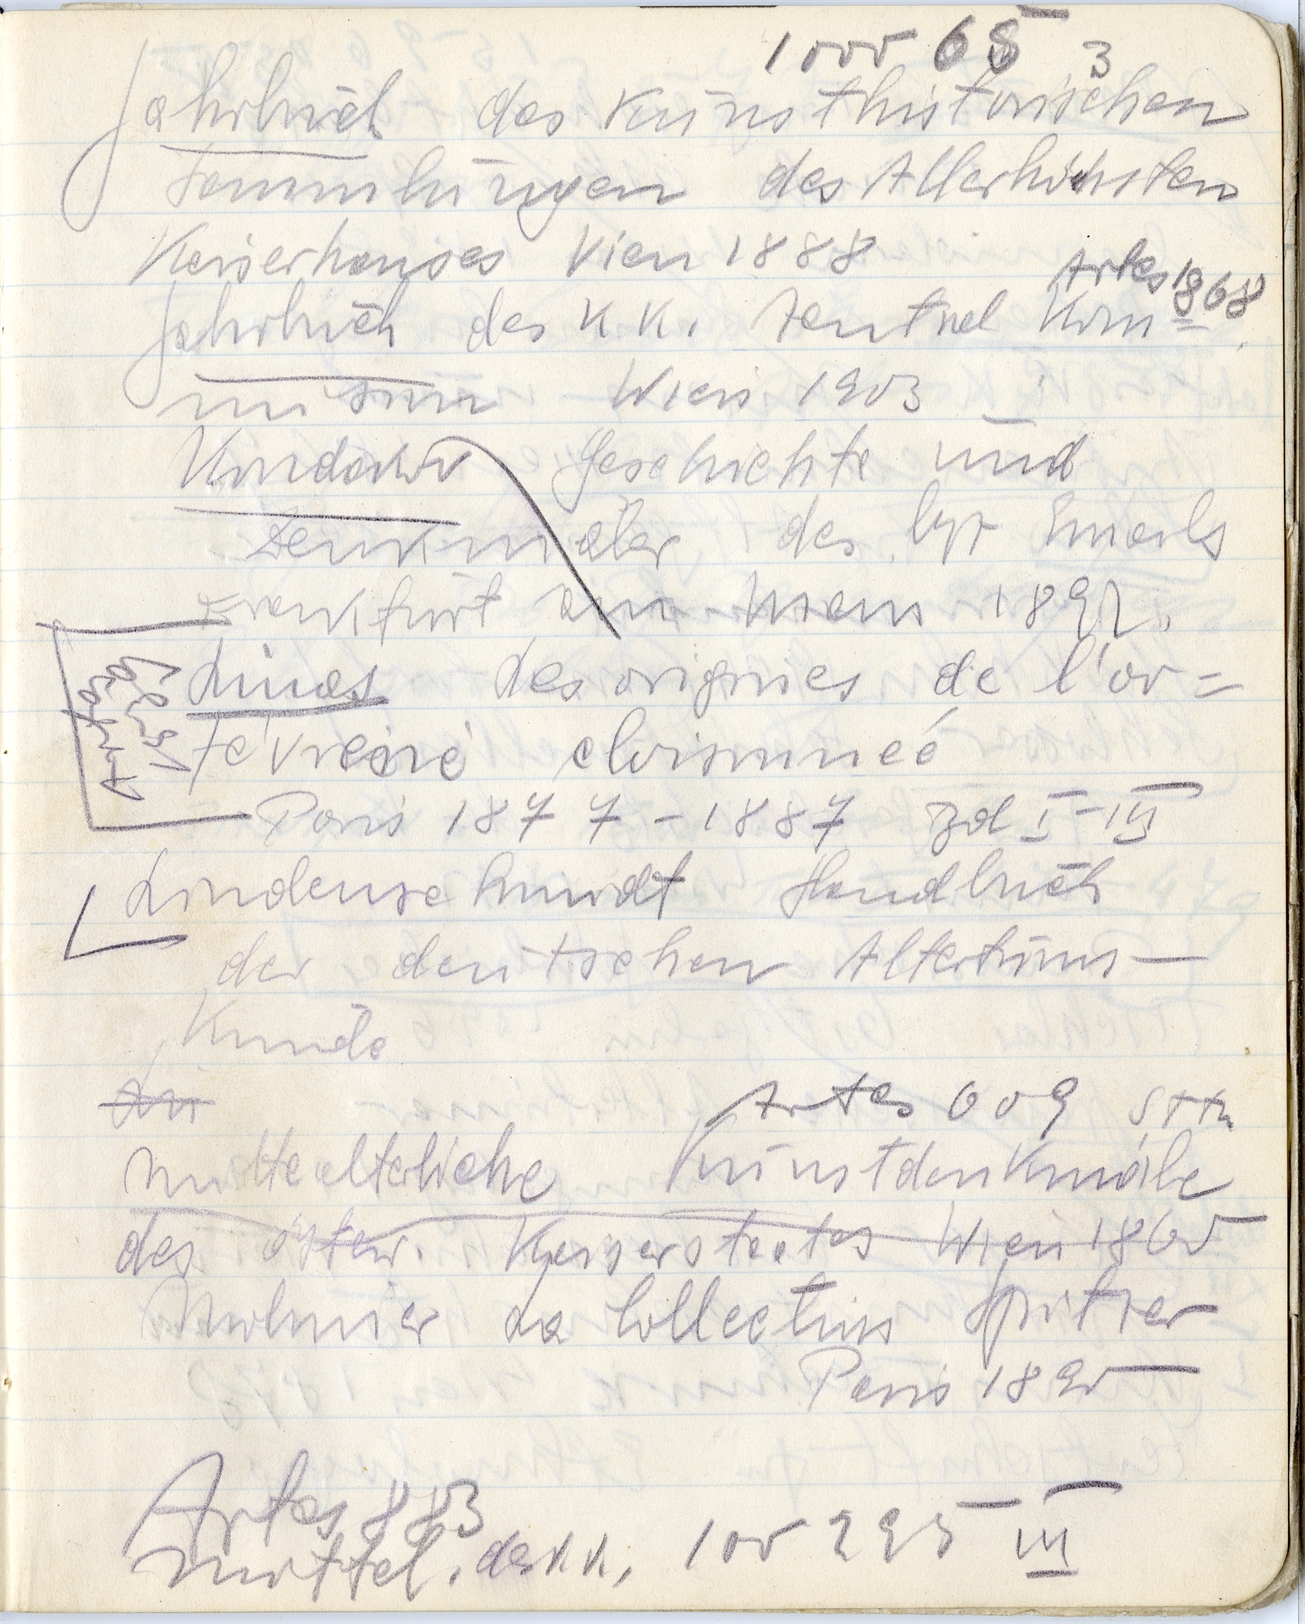 1000 65 3
Jahrbuch des Kunsthistorischen
Sammlungen des Allerhöchsten
Keiserhauses Wien 1888
Artes 1868
Jahrbuch des K.K. Zentral Kom=
mission Wien 1903
Kondakov Geschichte und
Denkmäler des byz Emails
Frankfurt am Mein 1892.
Linas Les origines de l'or=
févrerie cloisonneé
Paris 1877-1887 Bd I-III
Lindenschmidt Handbuch
der deutschen Altertums—
Kunde
Li
Artes 609
Mittelalterliche Kunstdenkmäle
des öster. Keiserstaates Wien 1860
Molinier La Collection Spitzer
Paris 1890
Artes 883
Mittel. des k.k. 100 295 III